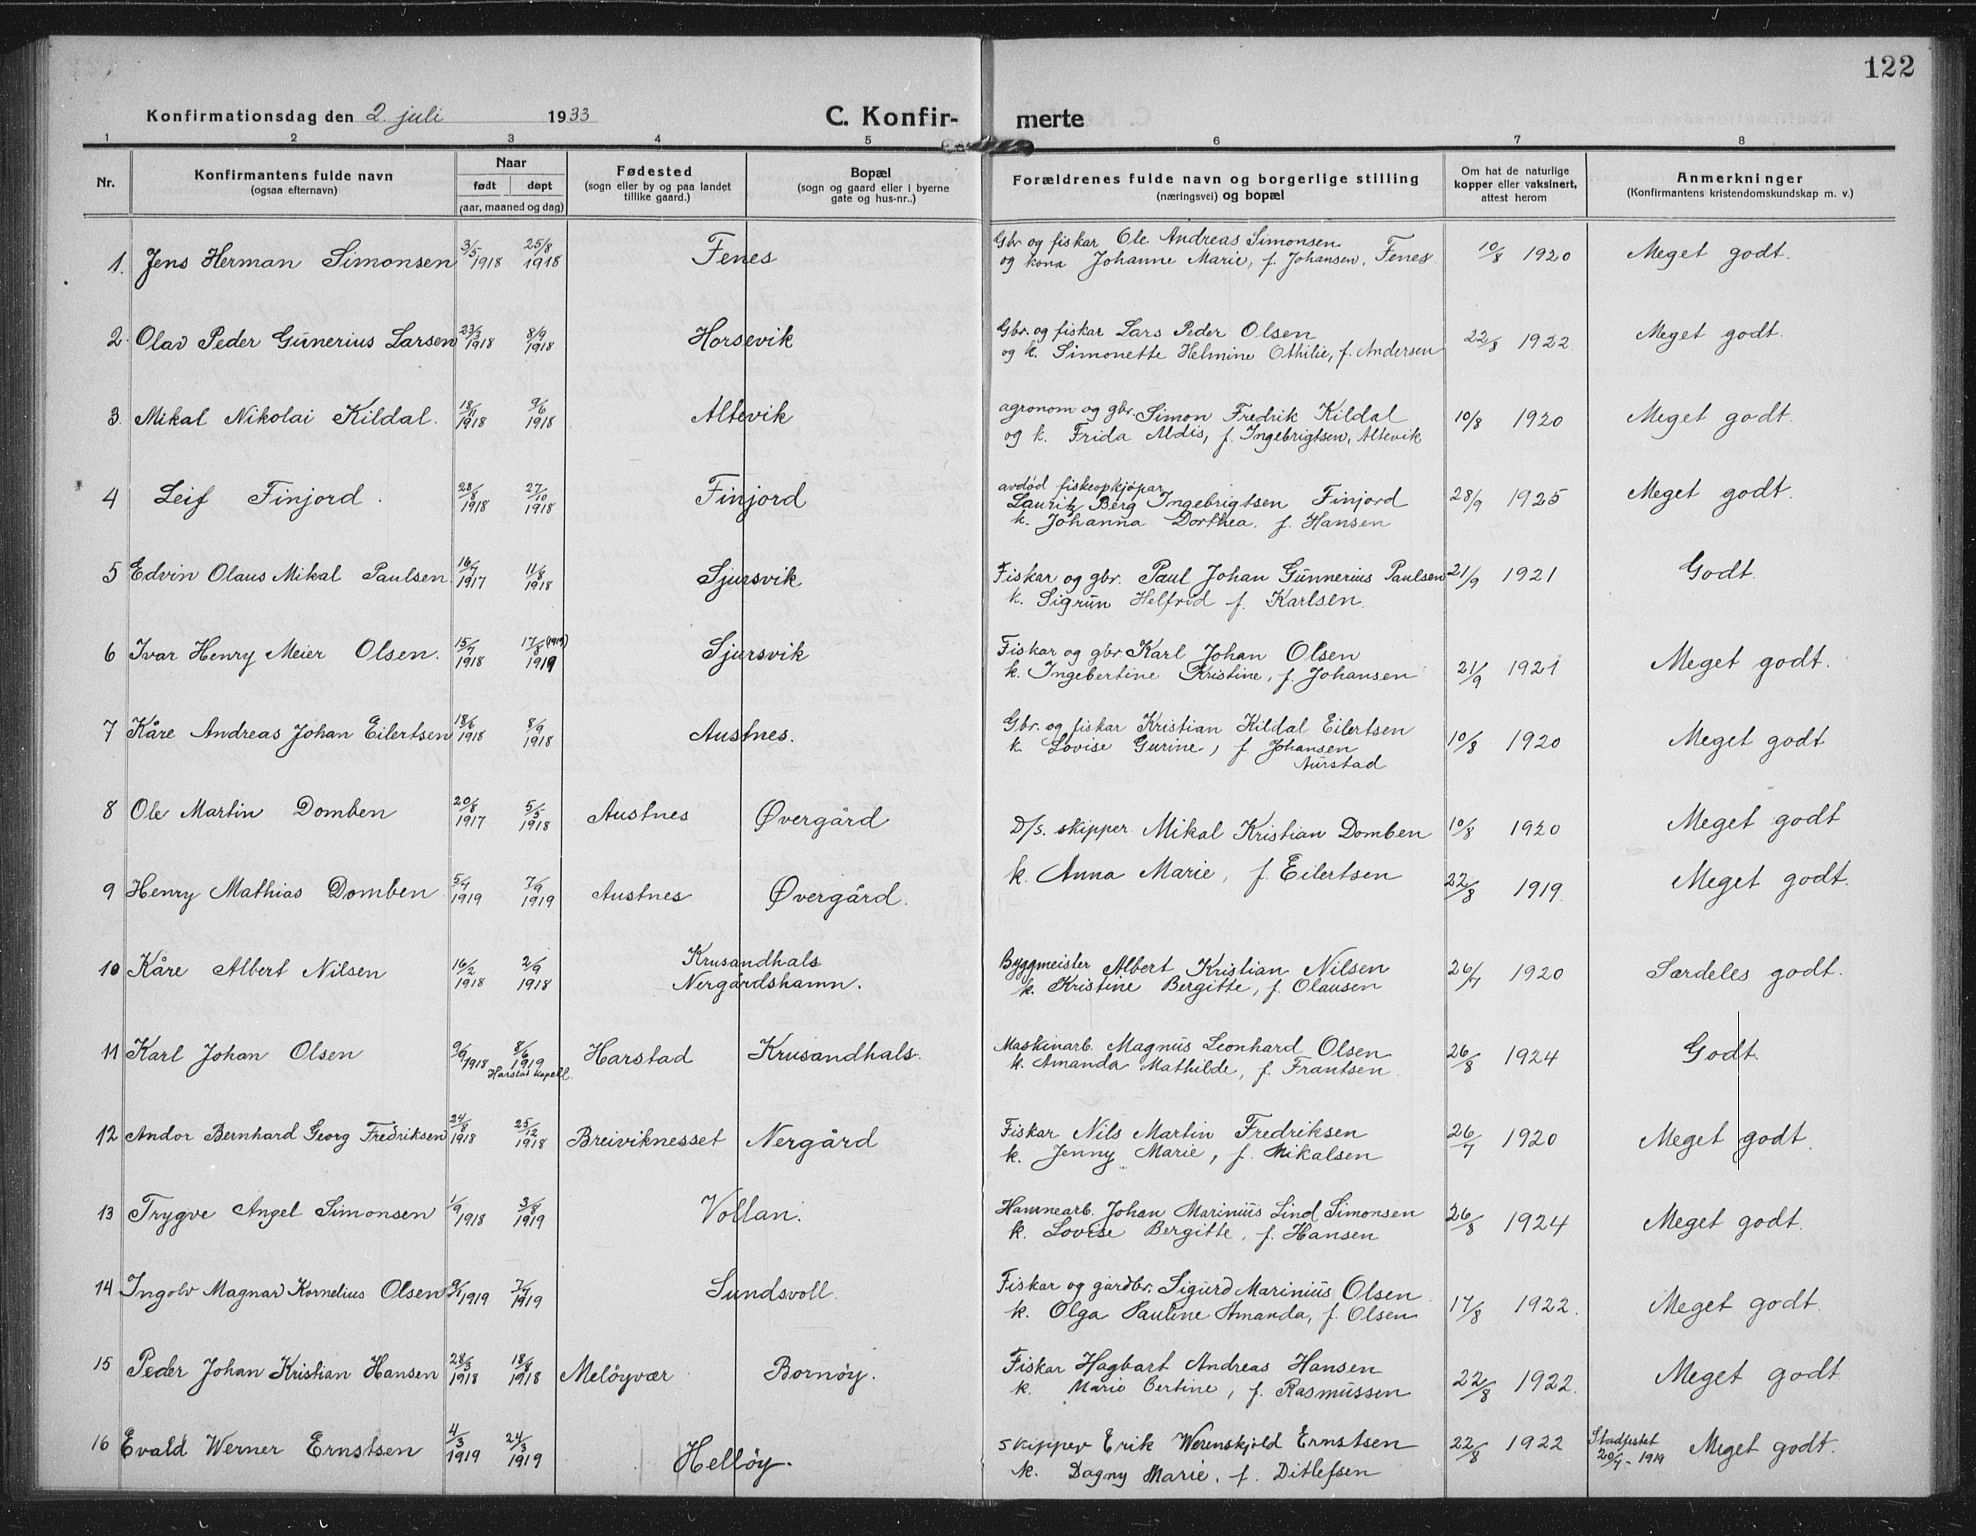 122
Konfirmationsdag den 2. juli 1933
C. Konfir- merte
1 2 3 4 5 6 7 8
Nr.
Konfirmantens fulde navn
(ogsaa efternavn)
Naar
født døpt
(aar, maaned og dag)
Fødested
(sogn eller by og paa landet
tillike gaard.)
Bopæl
(sogn og gaard eller i byerne
gate og hus-nr..)
Forældrenes fulde navn og borgerlige stilling
(næringsvei) og bopæl
Om hat de naturlige
kopper eller vaksinert,
attest herom
Anmerkninger
(Konfirmantens kristendomskundskap m. v.)
1. Jens Herman Simonsen 3/5 1918 25/8 1918 Fenes
Gbr og fiskar Ole Andreas Simonsen
og kona Johanne Marie, f. Johansen, Fenes 10/8 1920 Meget godt.
2. Olav Peder Gunerius Larsen 23/7 1918 8/9 1918 Horsevik
Gbr. og fiskar Lars Peder Olsen
og k. Simonette Helmine Othilie, f. Andersen 22/8 1922 Meget godt.
3. Mikal Nikolai Kildal. 1918 9/6 1918 Altevik
agronom og gbr. Simon Fredrik Kildal
og k. Frida Aldis, f. Ingebrigtsen, Altevik 10/8 1920 Meget godt.
4 Leif Finjord. 28/8 1918 27/10 1918 Finjord
avdød fiskeopkjøpar
Lauritz Berg Ingebrigtsen Finjord
k. Johanna Dorthea, f. Hansen 28/9 1925 Meget godt.
5 Edvin Olaus Mikal Paulsen 16/7 1917 11/8 1918 Sjursvik
Fiskar og gbr. Paul Johan Gunnerius Paulsen
k. Sigrun Helfrid f. Karlsen. 21/9 1921 Godt.
6 Ivar Henry Meier Olsen. 15/7 1918 17/8 (1919) 1919 Sjursvik
Fiskar og gbr. Karl Johan Olsen
k. Ingebertine Kristine, f. Johansen 21/9 1921 Meget godt.
7 Kåre Andreas Johan Eilertsen 18/6 1918 8/9 1918 Austnes.
Gbr. og fiskar Kristian Kildal Eilertsen
k. Lovise Gurine, f. Johansen
Aurstad 10/8 1920 Meget godt
8 Ole Martin Domben 20/8 1917 5/5 1918 Austnes Øvergård
D/s. skipper Mikal Kristian Domben 10/8 1920 Meget godt
k. Anna Marie, f. Eilertsen
9 Henry Mathias Domben 5/7 1919 7/9 1919 Austnes Øvergård. 22/8 1919. Meget godt.
10 Kåre Albert Nilsen 16/2 1918 2/9 1918 Krusandhals
Nergårdshamn.
Byggmeister Albert Kristian Nilsen
k. Kristine Bergitte, f. Olausen 26/7 1920 Særdeles godt.
11 Karl Johan Olsen 9/9 1918 8/6 1919 Harstad Krusandhals.
Harstad kapell.
Maskinarb. Magnus Leonhard Olsen
k. Amanda Mathilde, f. Frantsen. 26/8 1924 Godt.
12 Andor Bernhard Georg Fredriksen 24/8 1918 25/12 1918 Breiviknesset Nergård
Fiskar Nils Martin Fredriksen
k. Jenny Marie, f. Mikalsen 26/7 1920 Meget godt.
13 Trygve Angel Simonsen 1/9 1918 3/8 1919 Vollan.
Hamnearb. Johan Marinius Lind Simonsen
k. Lovise Bergitte, f. Hansen 26/8 1924 Meget godt.
14 Ingolv Magnar Kornelius Olsen 9/1 1919 1919 Sundsvoll.
Fiskar og gardbr. Sigurd Marinius Olsen
k. Olga Pauline Amanda, f. Olsen 17/8 1922. Meget godt.
15 Peder Johan Kristian Hansen 28/3 1918 18/8 1918 Meløyvær Bornøy.
Fiskar Hagbart Andreas Hansen
k. Marie Bertine, f. Rasmussen 22/8 1922. Meget godt.
16 Evald Werner Ernstsen 4/3 1919 24/3 1919 Helløy.
Skipper Erik Werenskjold Ernstsen
k. Dagny Marie, f. Ditlefsen 22/8 1922 Stadfestet 20/4 - 1919 Meget godt.